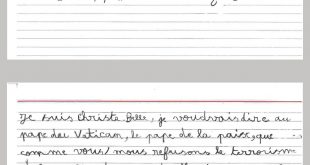 Je suis Christa Belle, je voudrais dire au
pape du Vatican, le pape de la paix, que
comme vous/nous refusons le terrorisme